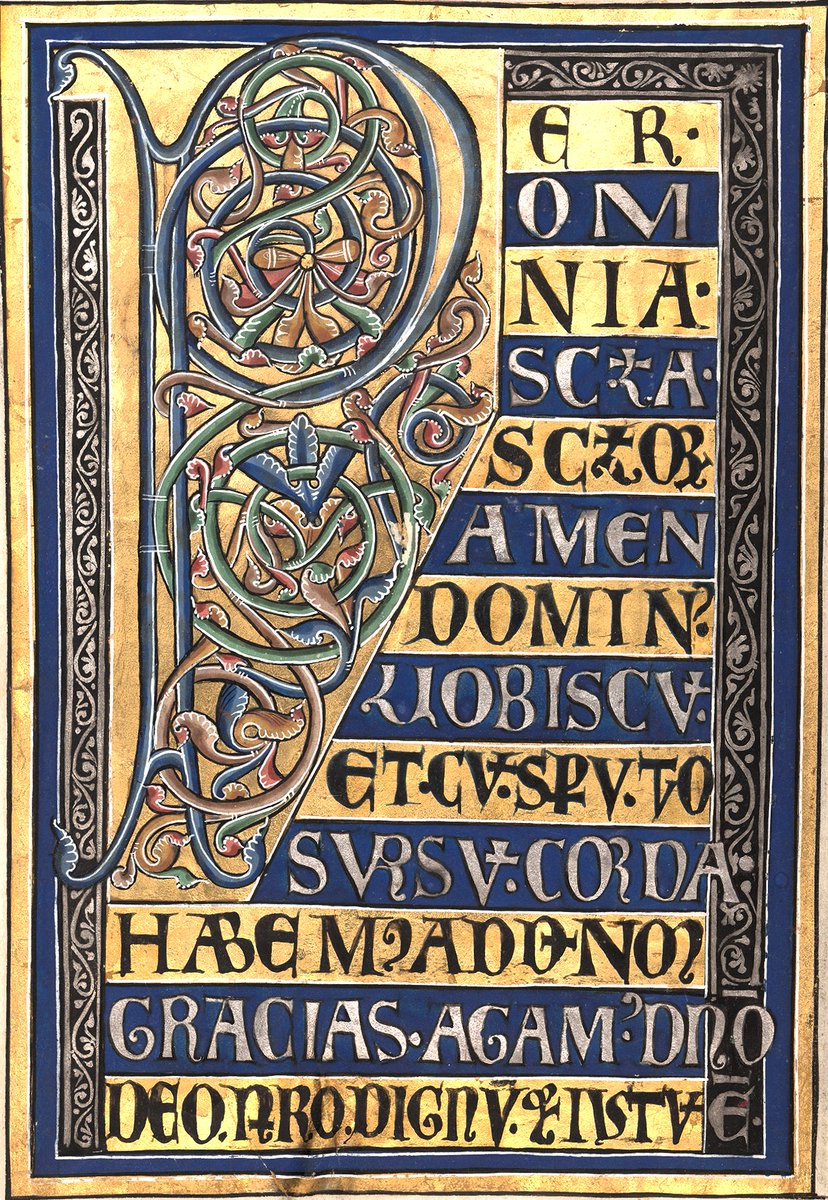 PER·
OM
NIA·
SCLA·
SCLOR
AMEN
DOMIN᾿
UOBISCV̄·
ET·CV̄·SPV·TO
SVRSV̄·CORDA·
HABEM᾿AD DO·NOM
GRACIAS·AGAM᾿DN̄O
DEO·NRO·DIGNV̄·&IVSTV̄·Ē·